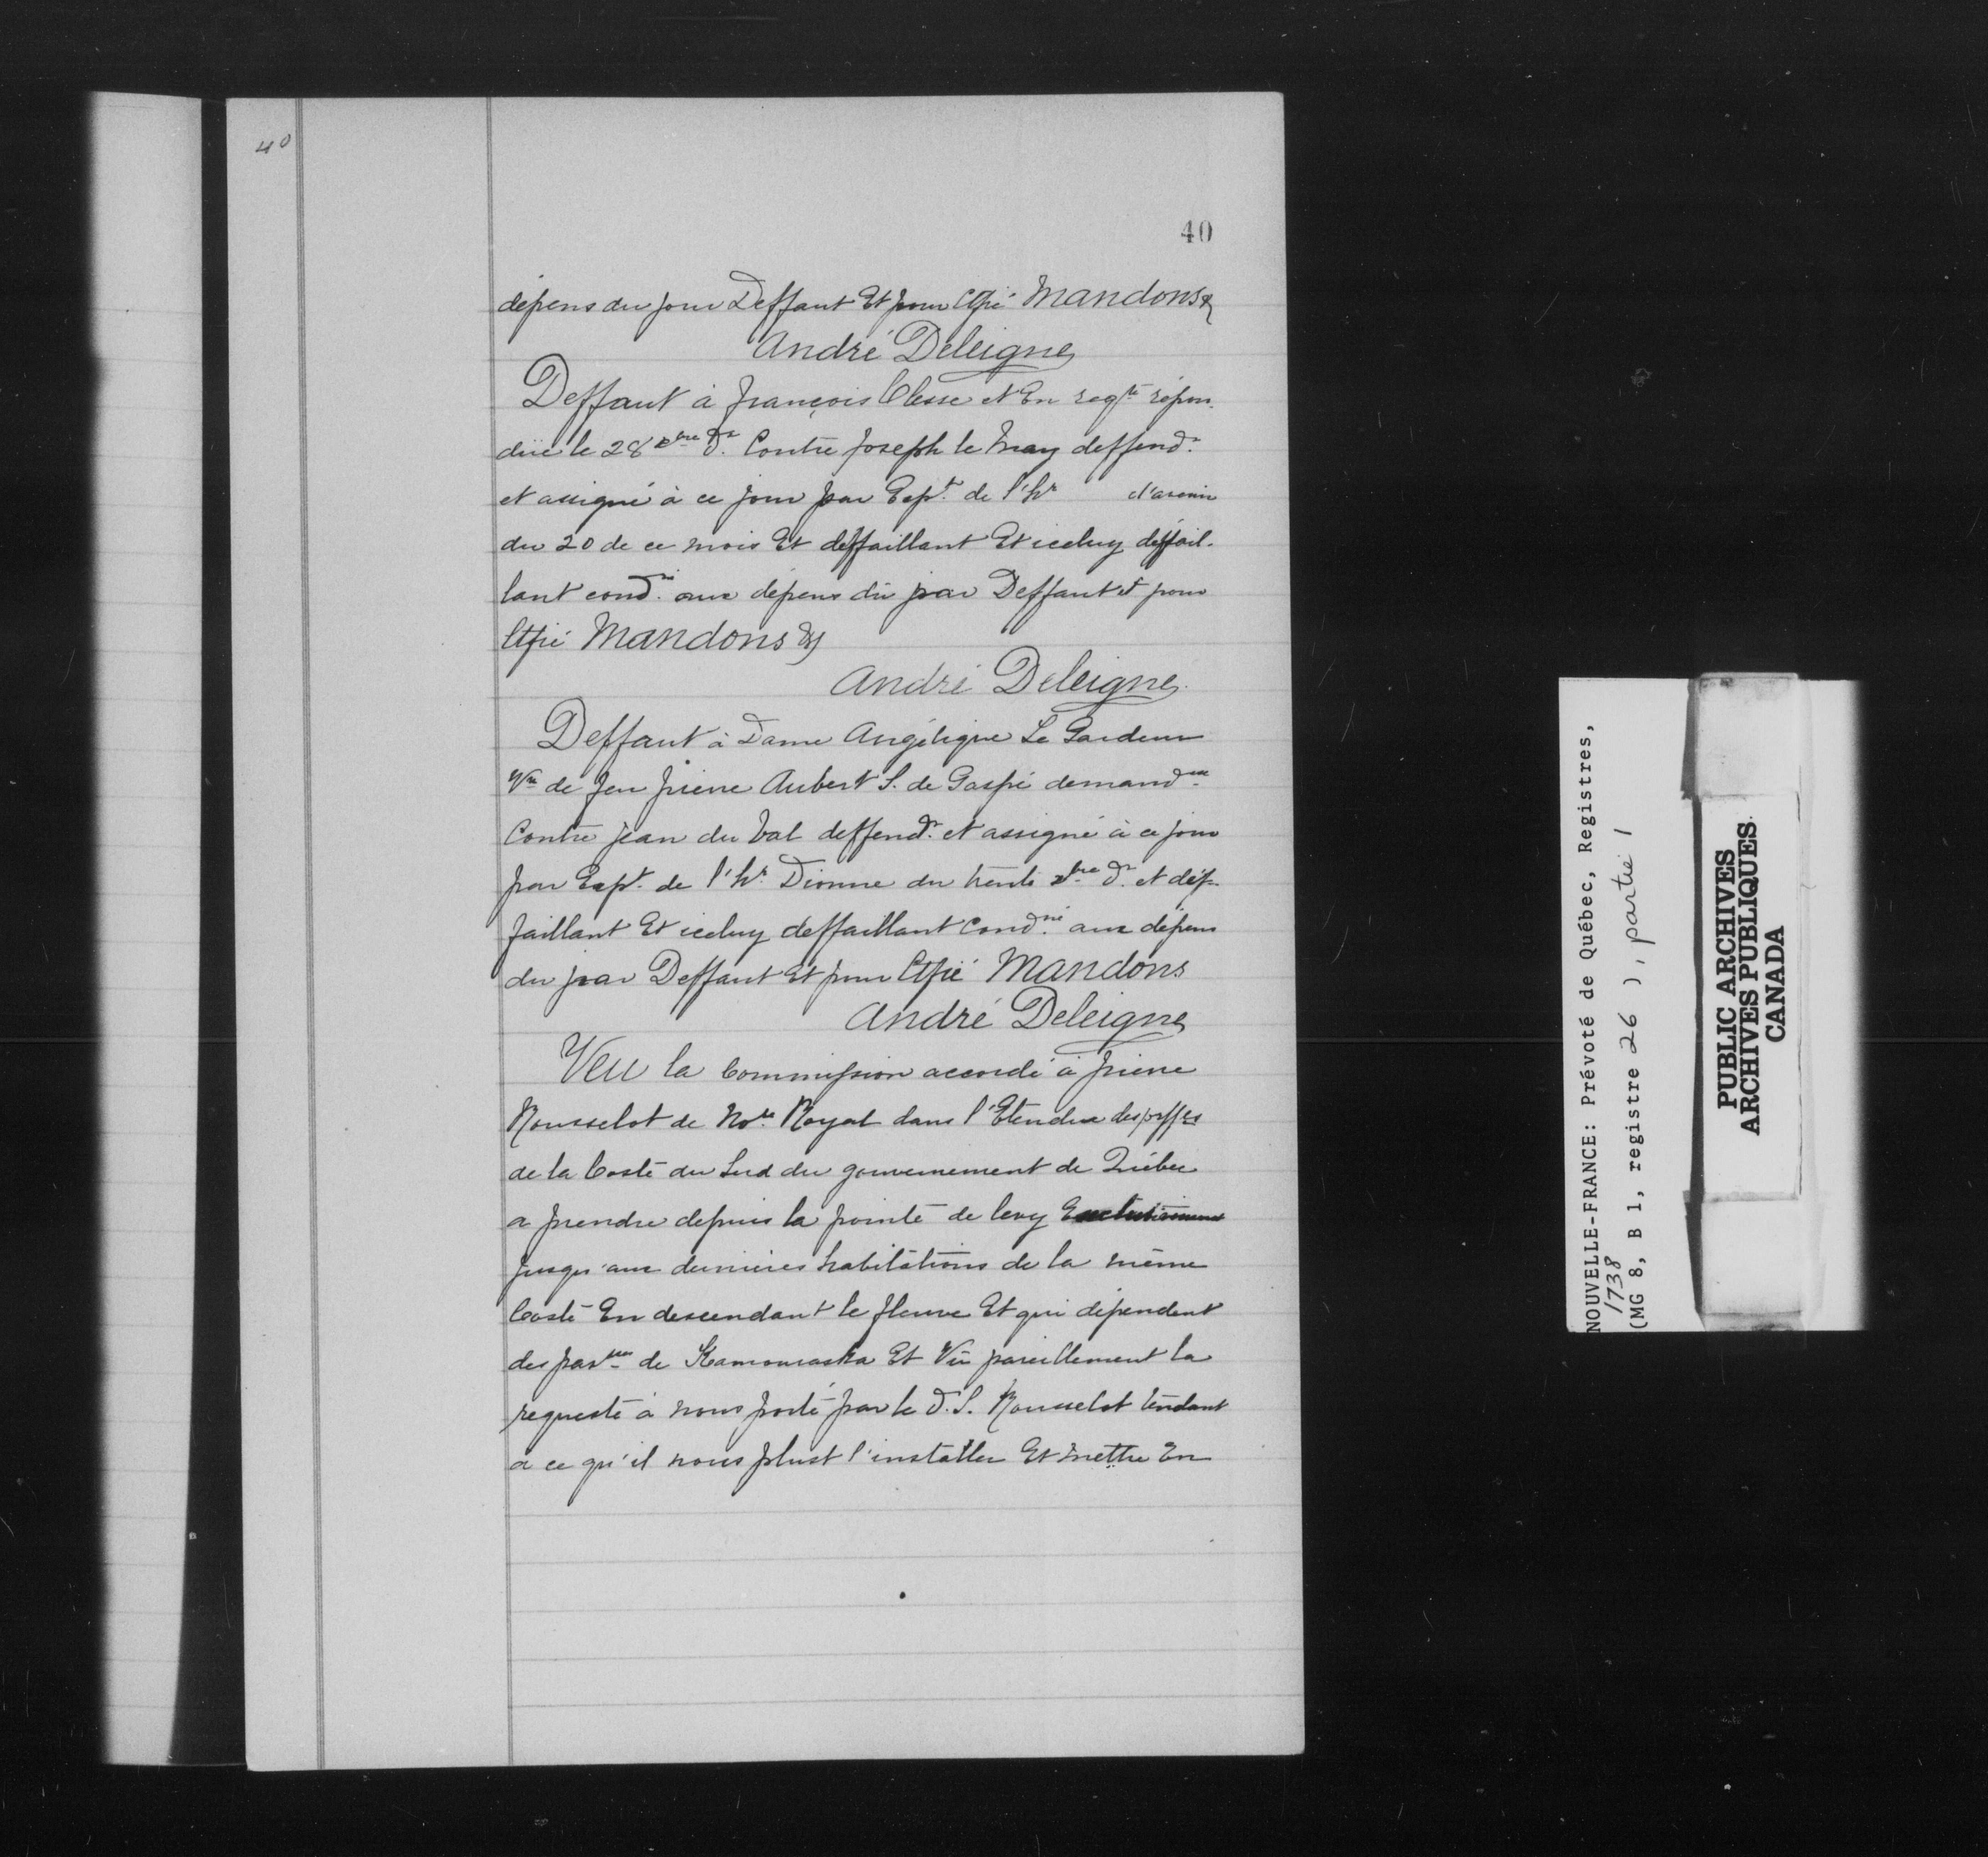 40
40
dépens du jour Deffaut Et pour Mandons &
André Deleigne
Deffaut à François Clesse et En reqte répon-
düe le 28 xbre dr. Contre Joseph le May deffendr.
et assigné à ce jour par Expt. de l'hr d'avenir
du 20 de ce mois Et deffaillant Et iceluy deffail-
lant condné. aux dépens du par Deffaut et pour
Mandons &
André Deleigne
Deffaut à Dame Angélique Le Gardeur
Vve de feu pierre Aubert S. de Gaspé demandsse
Contre jean du Val deffendr. et assigné à ce jour
par Expt. de l'hr. Dionne du trente xbre dr. et def-
faillant Et iceluy deffaillant Condné. aux dépens
du par Deffaut Et pour Mandons
André Deleigne
Veu la Commission accordé à pierre
Rousselot de Nore. Royal dans l'Etendue des
de la Coste du Sud du gouvernement de Québec
a prendre depuis la pointe de levy Exclusivement
jusqu'aux dernières habitations de la même
Coste En descendant le fleuve Et qui dépendent
des de Kamouraska Et Vû pareillement la
requeste à nous porté par le d. S. Rousselot tendant
a ce qu'il nous plust l'installer Et mettre En
NOUVELLE-FRANCE: Prévoté de Québec, Registres,
1738
(MG 8, B 1, registre 26 ), partie 1
PUBLIC ARCHIVES
ARCHIVES PUBLIQUES
CANADA